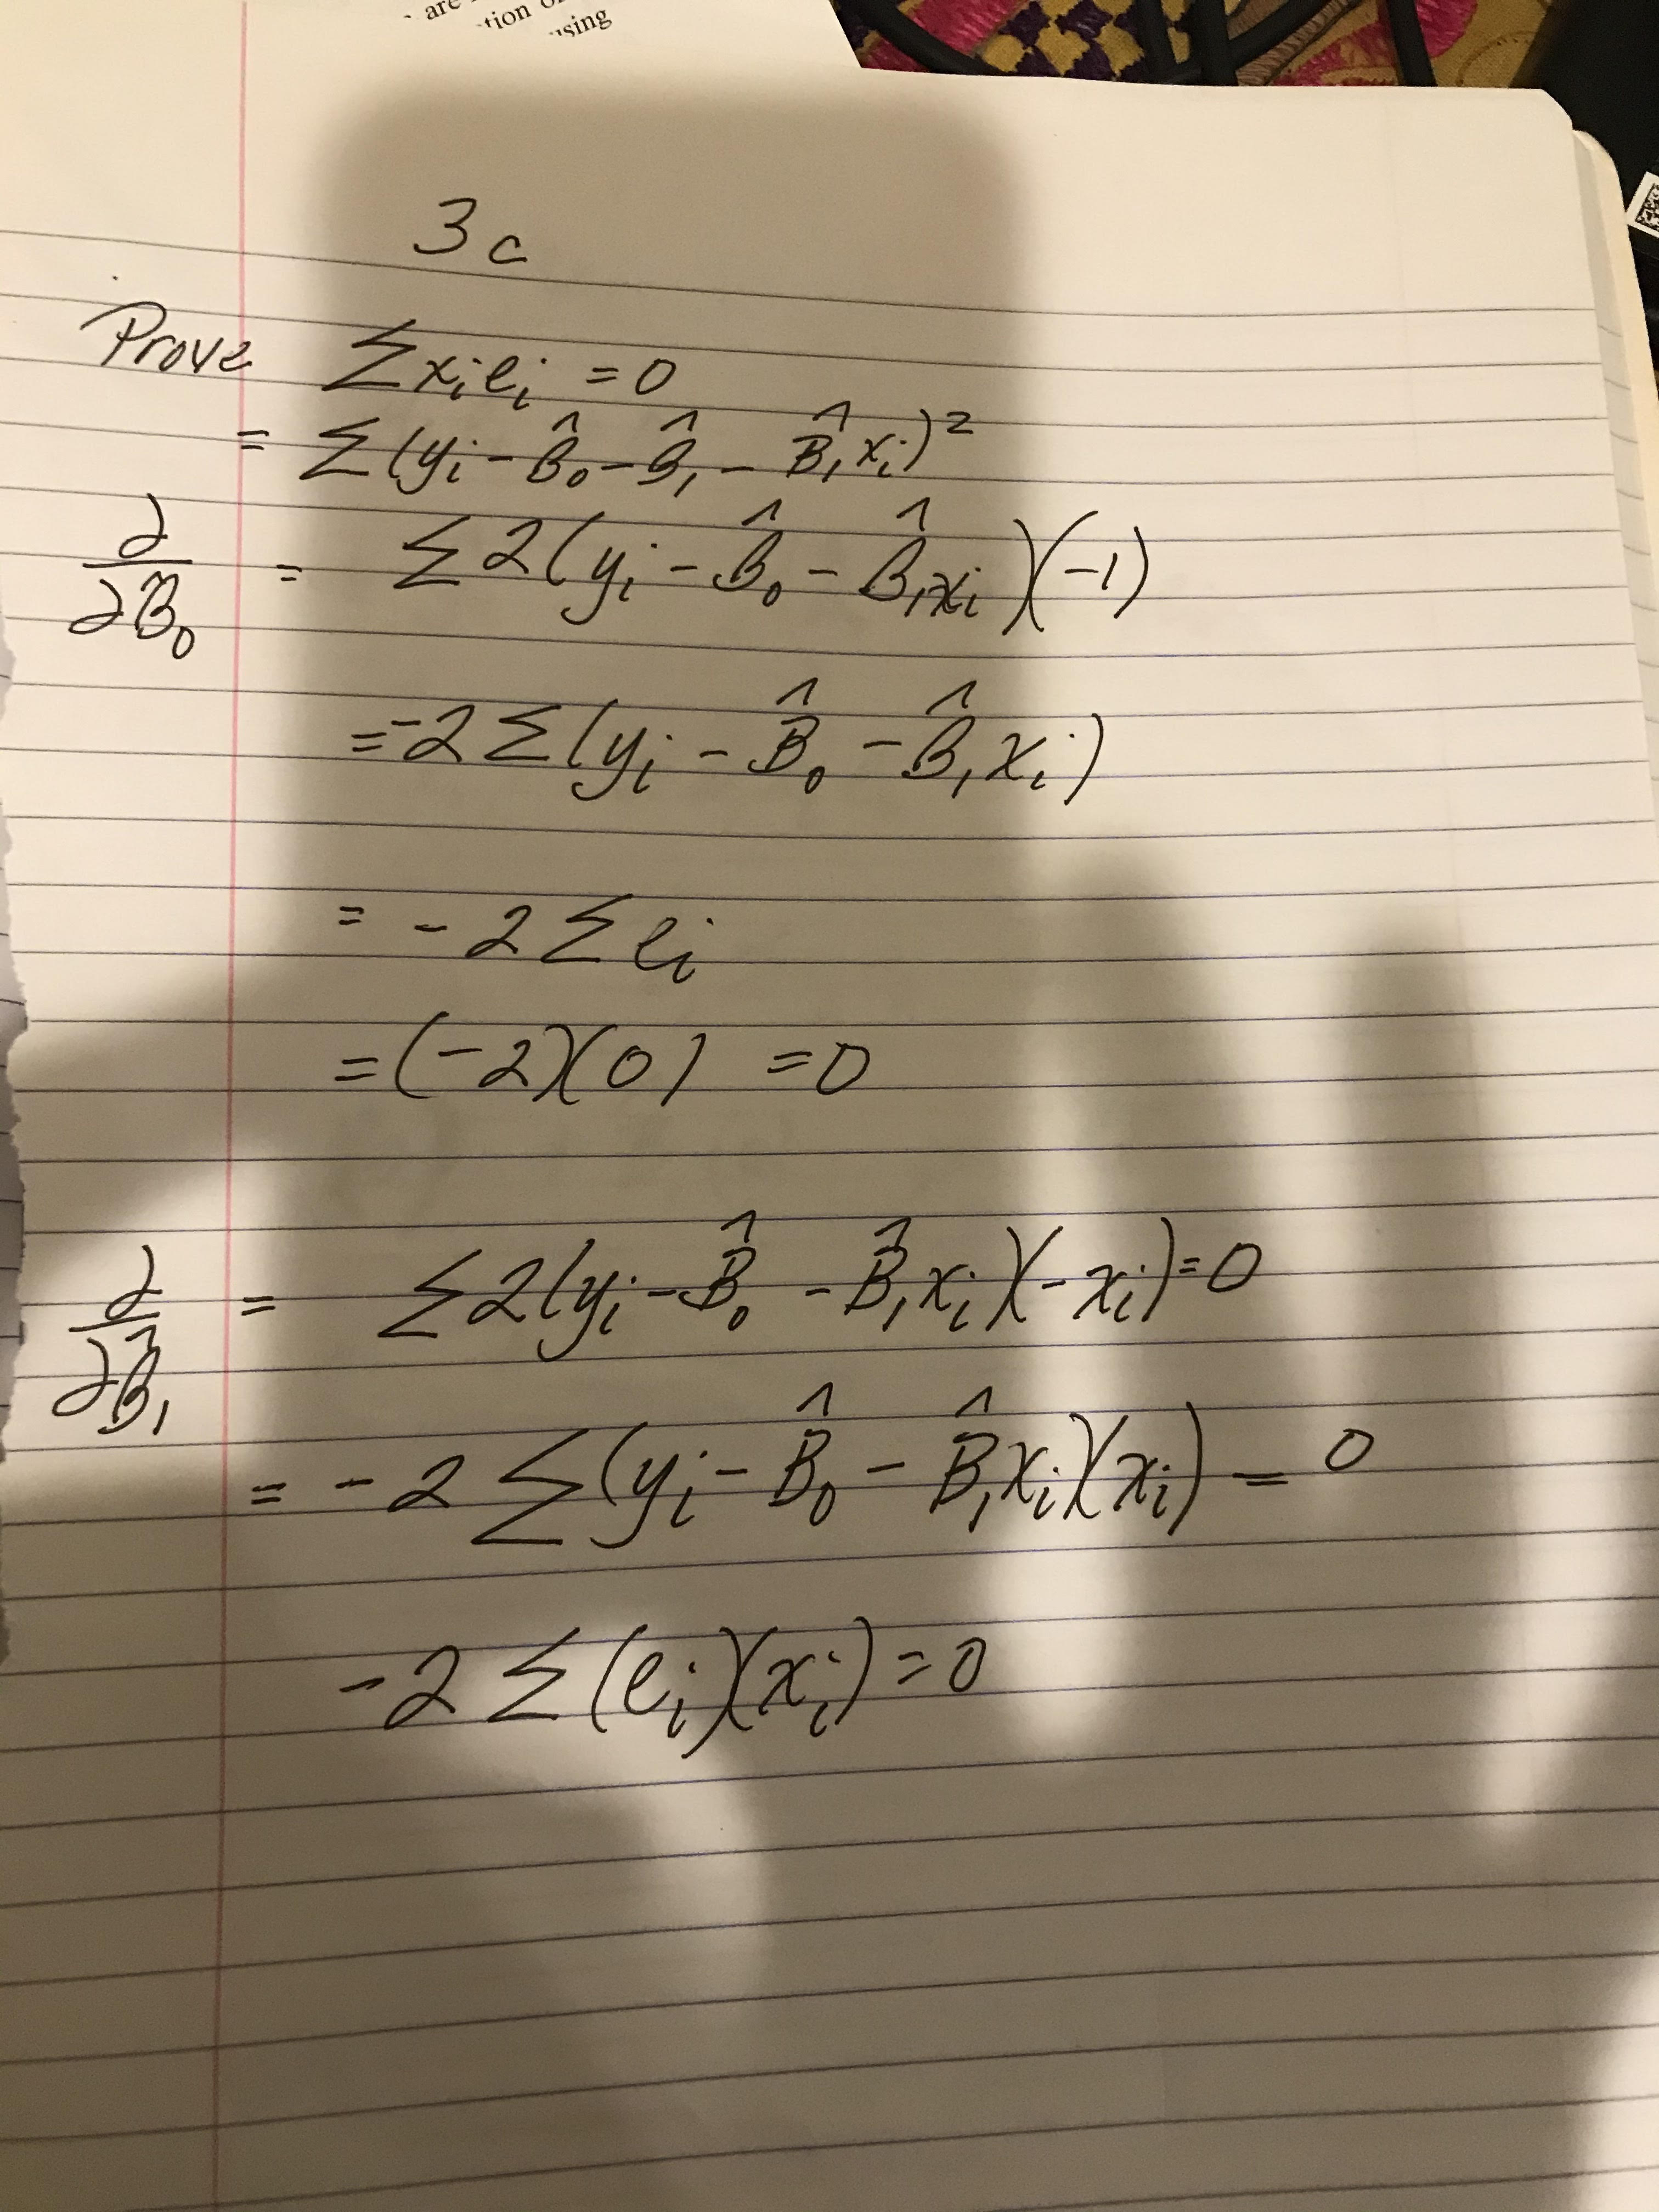 are
tion
using
3c
Prove Σxᵢeᵢ = 0
= Σ(yᵢ - B̂₀ - B̂₁ - B̂₁xᵢ)²
∂/∂B̂₀ = Σ2(yᵢ - B̂₀ - B̂₁xᵢ)(-1)
= -2Σ(yᵢ - B̂₀ - B̂₁xᵢ)
= -2Σeᵢ
= (-2)(0) = 0
∂/∂B̂₁ = Σ2(yᵢ - B̂₀ - B̂₁xᵢ)(-xᵢ) = 0
= -2Σ(yᵢ - B̂₀ - B̂₁xᵢ)(xᵢ) = 0
-2Σ(eᵢ)(xᵢ) = 0